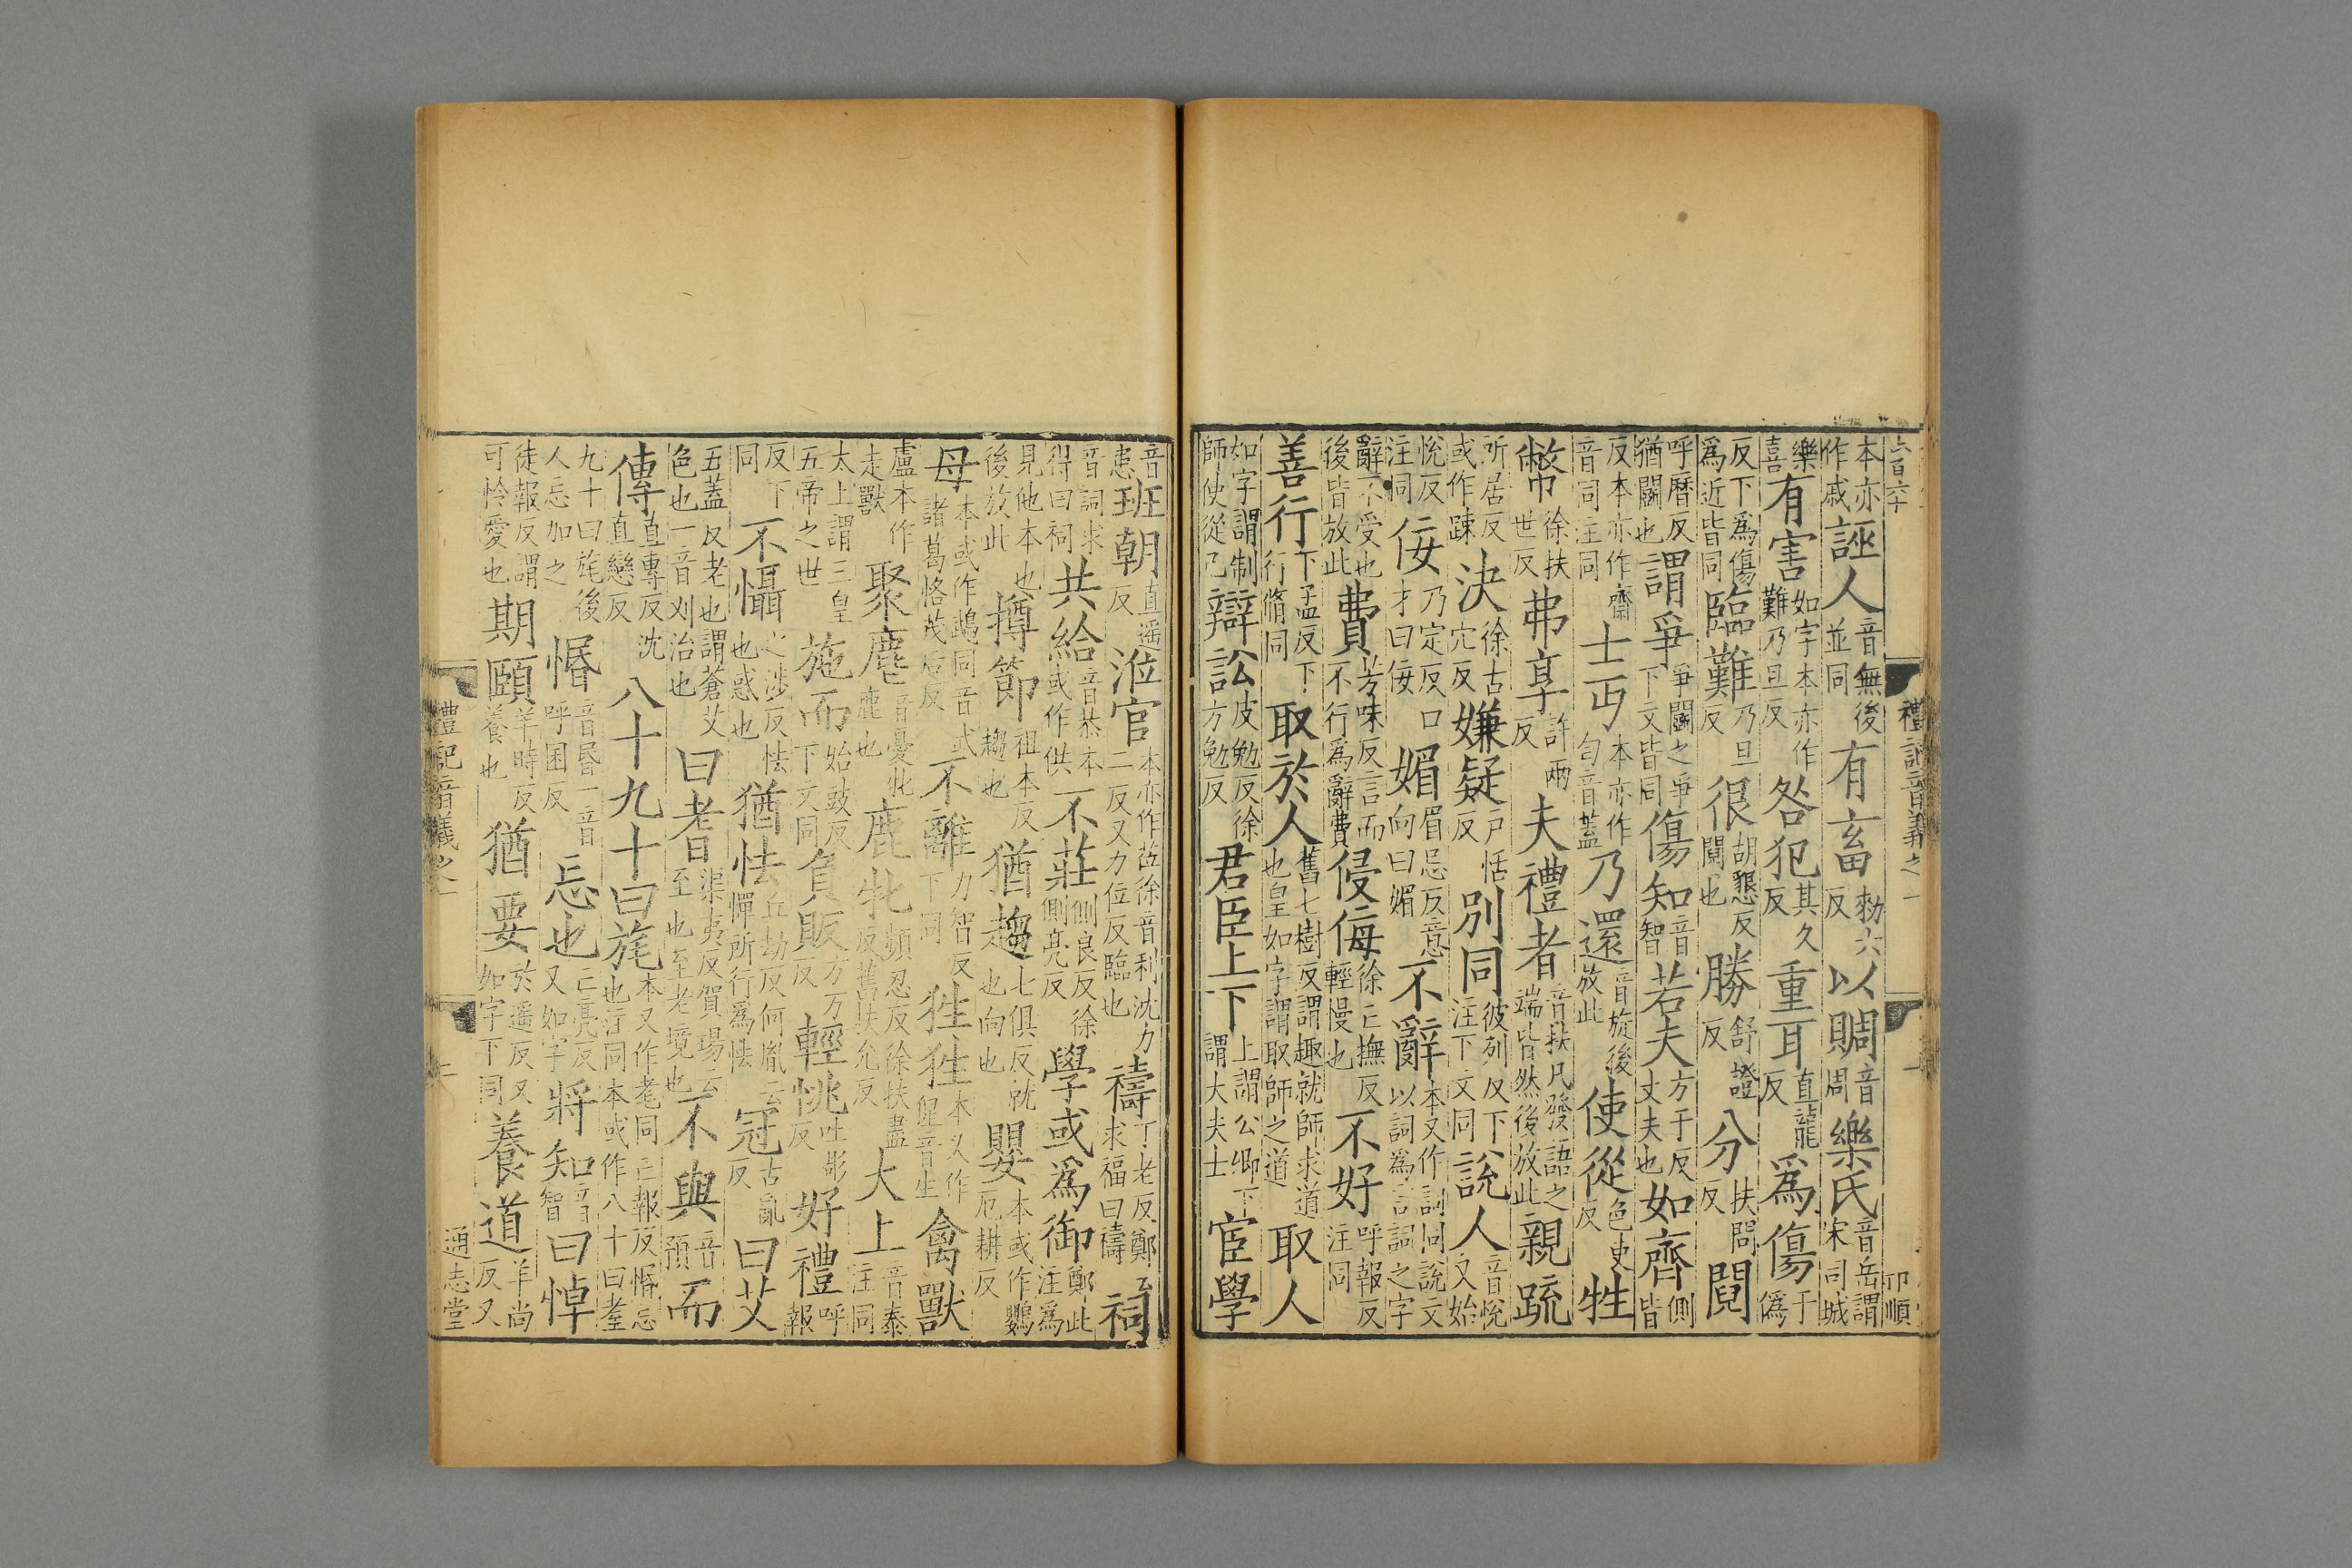 六百六十 禮記音義之一 一 卬順
本亦作戚誣人音無後並同有畜勑六反以賙音周樂氏音岳謂宋司城
樂喜有害如字本亦作難乃旦反咎犯其久反重耳直龍反爲傷于僞
反下爲傷爲近皆同臨難乃旦反很胡懇反鬩也勝舒證反分扶問反鬩
呼曆反猶鬭也謂爭爭鬭之爭下文皆同傷知音智若夫方于反丈夫也如齊側皆
反本亦作齋音同注同士丐本亦作匄音蓋乃還音旋後放此使從色吏反牲
幣徐扶世反弗享許兩反夫禮者音扶凡發語之端皆然後放此親疏
所居反或作踈決徐古穴反嫌疑戶恬反別同彼列反下注下文同說人音悅又始
悅反注同佞乃定反口才曰佞媚眉忌反意向曰媚不辭本又作詞同說文以詞爲言詞之字
辭不受也後皆放此費芳味反言而不行爲辭費侵侮徐亡撫反輕慢也不好呼報反注同
善行下孟反下行脩同取於人舊七樹反謂趣就師求道也皇如字謂取師之道取人
如字謂制師使從己辯訟皮勉反徐方勉反君臣上下上謂公卿下謂大夫士宦學
音患班朝直遥反涖官本亦作莅徐音利沈力二反又力位反臨也禱丁老反鄭云求福曰禱祠
音詞求得曰祠共給音恭本或作供不莊側良反徐側亮反學或爲御鄭此注爲
見他本也後放此撙節祖本反趨也猶趨七俱反就也向也嬰本或作鸚厄耕反
母本或作䳇同音武諸葛恪茂后反不離力智反下同狌狌本又作猩音生禽獸
盧本作走獸聚麀音憂牝鹿也鹿牝頻忍反徐扶盡反舊扶允反大上音泰注同
太上謂三皇五帝之世施而始豉反下文同負販方万反輕恌吐彫反好禮呼報
反下同不懾之涉反怯也惑也猶怯丘劫反何胤云憚所行爲怯冠古亂反曰艾
五蓋反老也謂蒼艾色也一音刈治也曰耆渠夷反賀瑒云至也至老境也不與音預而
傳直專反沈直戀反八十九十曰旄本又作耄同亡報反惽忘也注同本或作八十曰耋
九十曰旄後人忘加之惽音昬一音呼困反忘也亡亮反又如字將知音智曰悼
徒報反謂可怜愛也期頤羊時反養也猶要於遥反又如字下同養道羊尚反又
禮記音義之一 二 通志堂